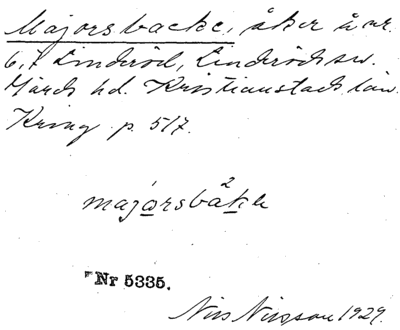 Majorsbacke, åker å nr.
6,7 Linderöd, Linderöds sn.
Gärds hd. Kristianstads län.
Kring p. 517.
majo̲rsbá²k̲e
Nr 5335.
Nils Nilsson 1929.